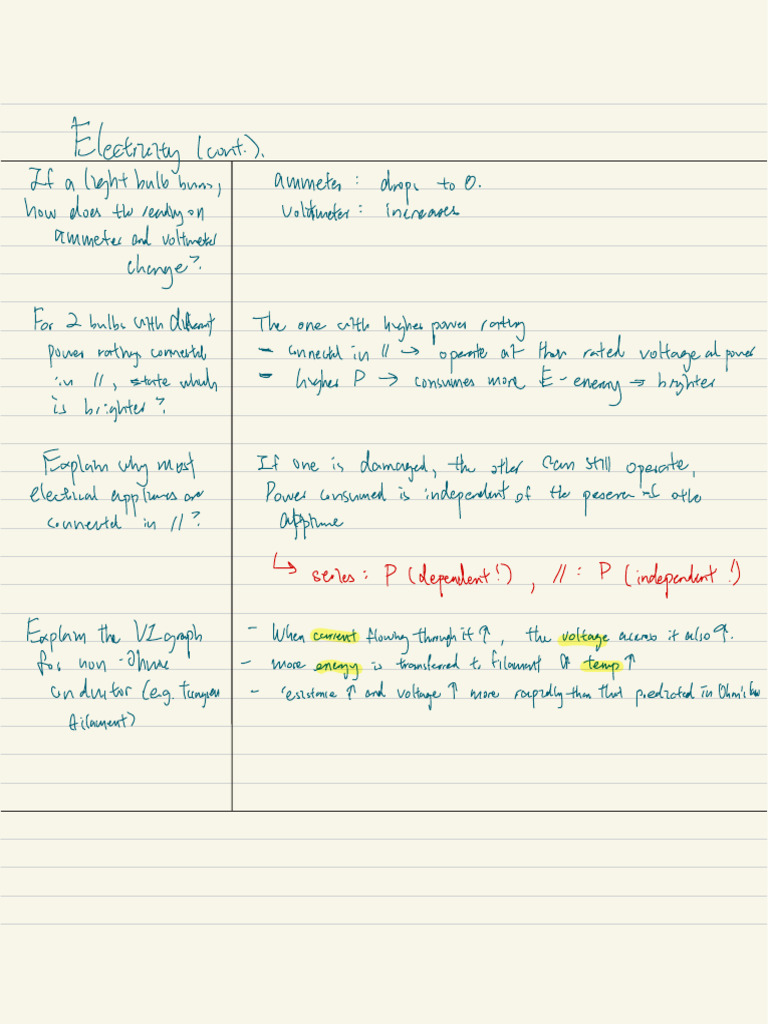 Electricity (cont.).
If a light bulb burns,
how does the reading on
ammeter and voltmeter
change?
ammeter : drops to 0.
voltmeter : increases
For 2 bulbs with different
power rating connected
in //, state which
is brighter?
The one with higher power rating
- connected in // → operate at their rated voltage and power
- higher P → consumes more E-energy → brighter
Explain why most
electrical appliances are
connected in //?
If one is damaged, the other can still operate,
Power consumed is independent of the presence of other
appliance
↳ series : P (dependent!) , // : P (independent!)
Explain the VI graph
for non-ohmic
conductor (e.g. tungsten
filament)
- When current flowing through it ↑, the voltage across it also ↑.
- more energy is transferred to filament & temp ↑
- resistance ↑ and voltage ↑ more rapidly than that predicted in Ohm's law